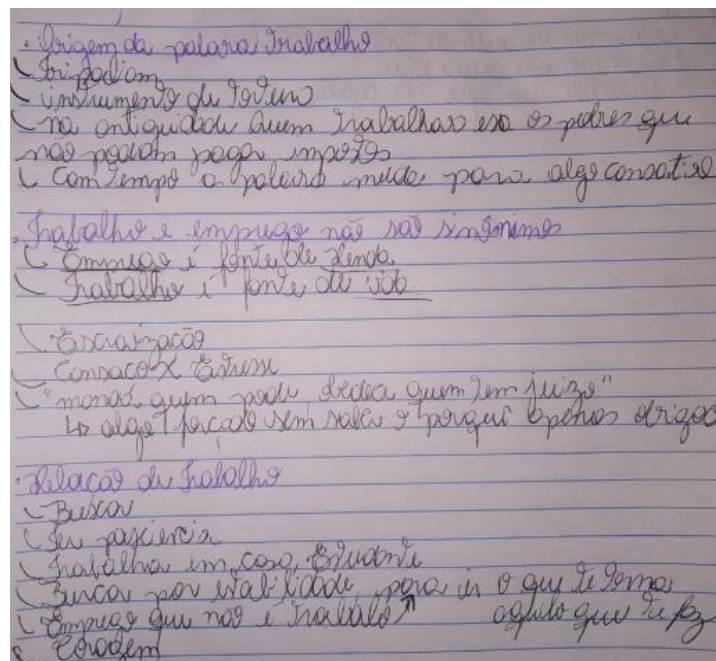 . Origem da palavra Trabalho
Tripaliom
instrumento de Tortura
na antiguidade Quem Trabalhav era os pobres que
não podiam pagar impostos
Com Tempo a palavra muda para algo
. Trabalho e emprego não são sinônimos
Emprego é fonte de Renda
Trabalho é fonte de vida
Escravização
Cansaço X Estresse
"manda quem pode, obedece quem Tem juizo"
↳ algo forçado sem saber o porquê apenas
. Relação de Trabalho
Buscar
Ter
Trabalha em casa, Estudante
Buscar por estabilidade, para ir o que Te Torna
Emprego que não é Trabalo ↗ aquilo que Te faz
Coragem